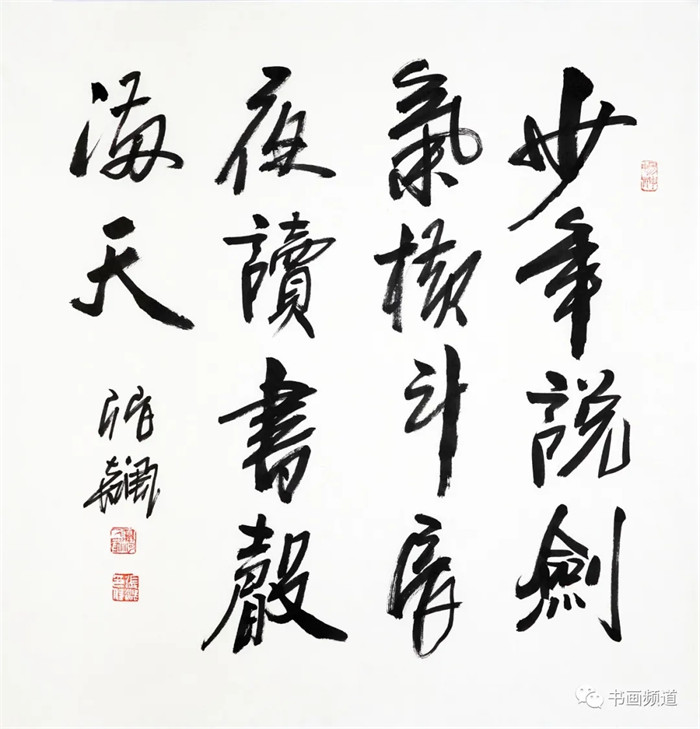 少年說劍
氣橫斗長
夜讀書聲
滿天
书画频道